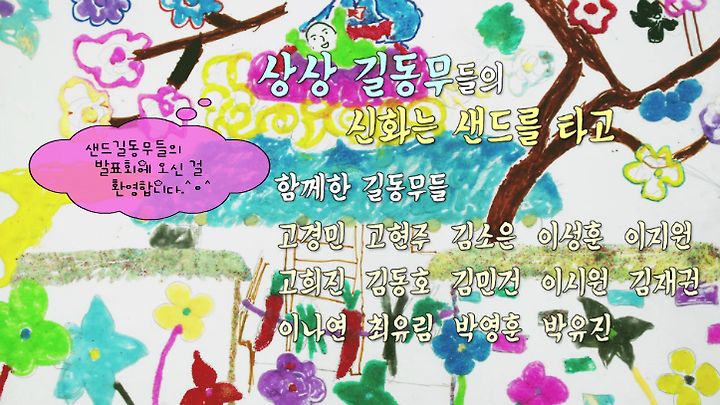 상상 길동무들의
신화는 샌드를 타고
샌드길동무들의
발표회에 오신 걸
환영합니다.^o^
함께한 길동무들
고경민 고현주 김소은 이성훈 이지원
고희진 김동호 김민건 이시원 김재권
이나연 최유림 박영훈 박유진